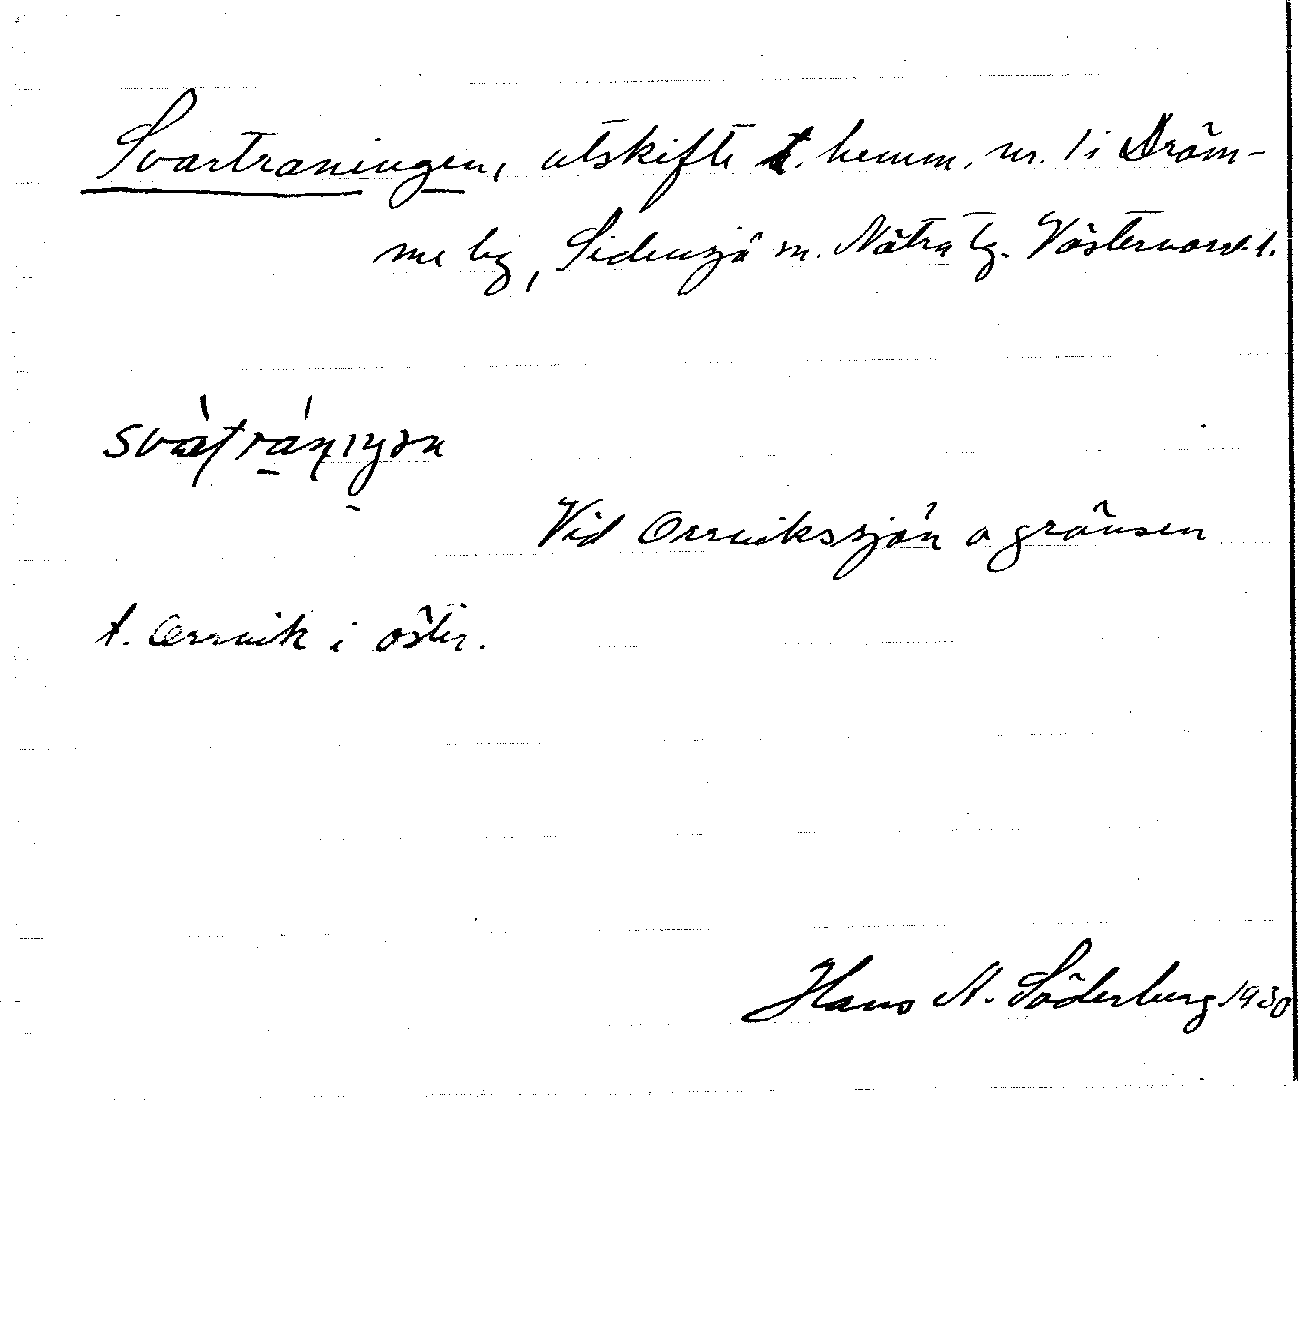 Svartraningen, utskifte t. hemm. nr. 1 i Dröm-
me by, Sidensjö sn. Nätra tg. Västernorrl.
Vid Orrvikssjön o gränsen
t. Orrvik i öster.
Hans N. Söderberg 1930